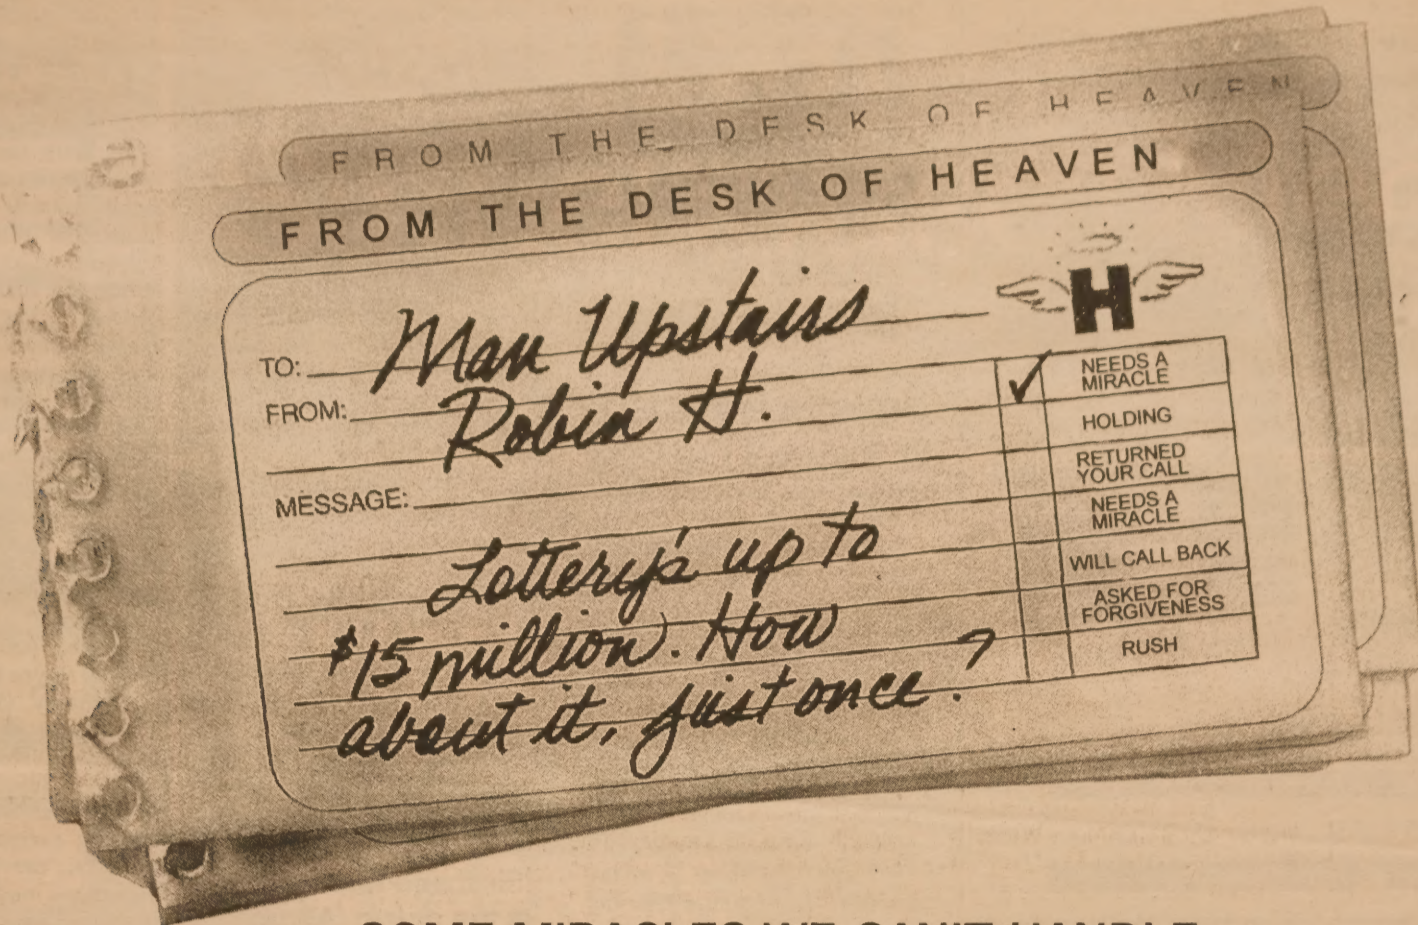 FROM THE DESK OF HEAVEN
FROM THE DESK OF HEAVEN
H
TO: Man Upstairs
FROM: Robin H.
MESSAGE:
Lottery's up to
$15 million. How
about it, just once?
NEEDS A
MIRACLE
HOLDING
RETURNED
YOUR CALL
NEEDS A
MIRACLE
WILL CALL BACK
ASKED FOR
FORGIVENESS
RUSH
SOME MIRACLES WE CAN'T HANDLE